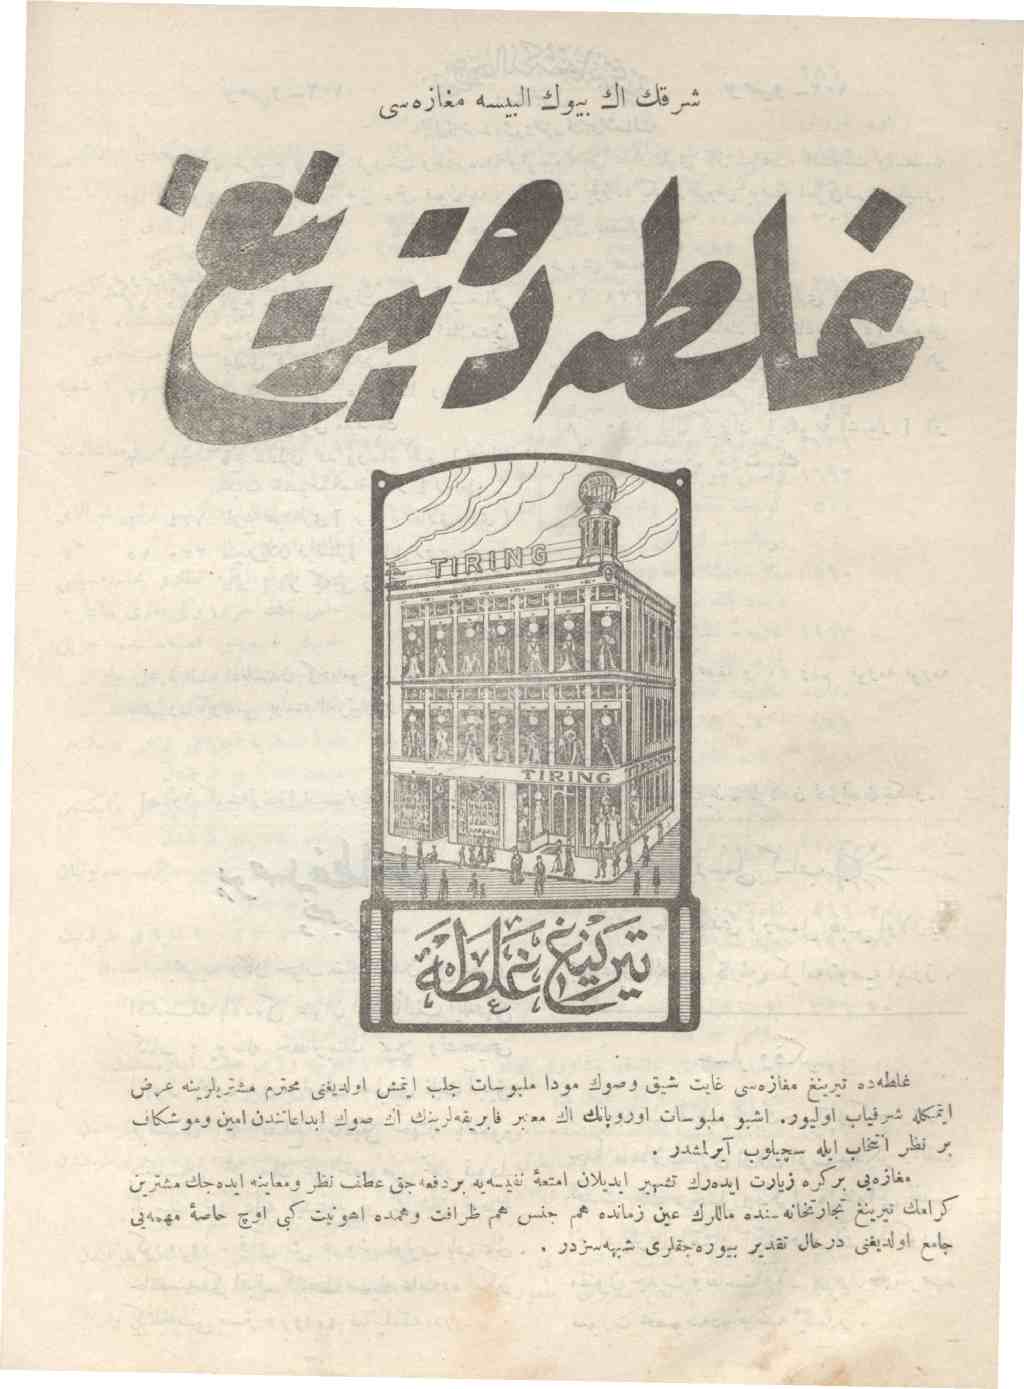 شرقك اك بيوك البيسه مغازه‌سى
غلطه‌ده تيرينغ
TIRING
TIRING
تيرينغ غلطه
غلطه‌ده تيرينغ مغازه‌سى غايت شيق وصوك مودا ملبوسات جلب ايتمش اولديغنى محترم مشتريلرينه عرض
ايتمكله شرفياب اوليور. اشبو ملبوسات اوروپانك اك معتبر فابريقه‌لرينك اك صوك ابداعاتندن امين وموشكاف
بر نظر انتخاب ايله سچيلوب آيرلمشدر .
مغازه‌يى بر كره زيارت ايده‌رك تشهير ايديلان امتعهٔ نفيسه‌يه بر دفعه‌جق عطف نظر ومعاينه ايده‌جك مشترين
كرامك تيرينغ تجارتخانه‌سنده ماللرك عين زمانده هم جنس هم ظرافت وهمده اهونيت كبى اوچ خاصهٔ مهمه‌يى
جامع اولديغنى درحال تقدير بيوره‌جقلرى شبهه‌سزدر .